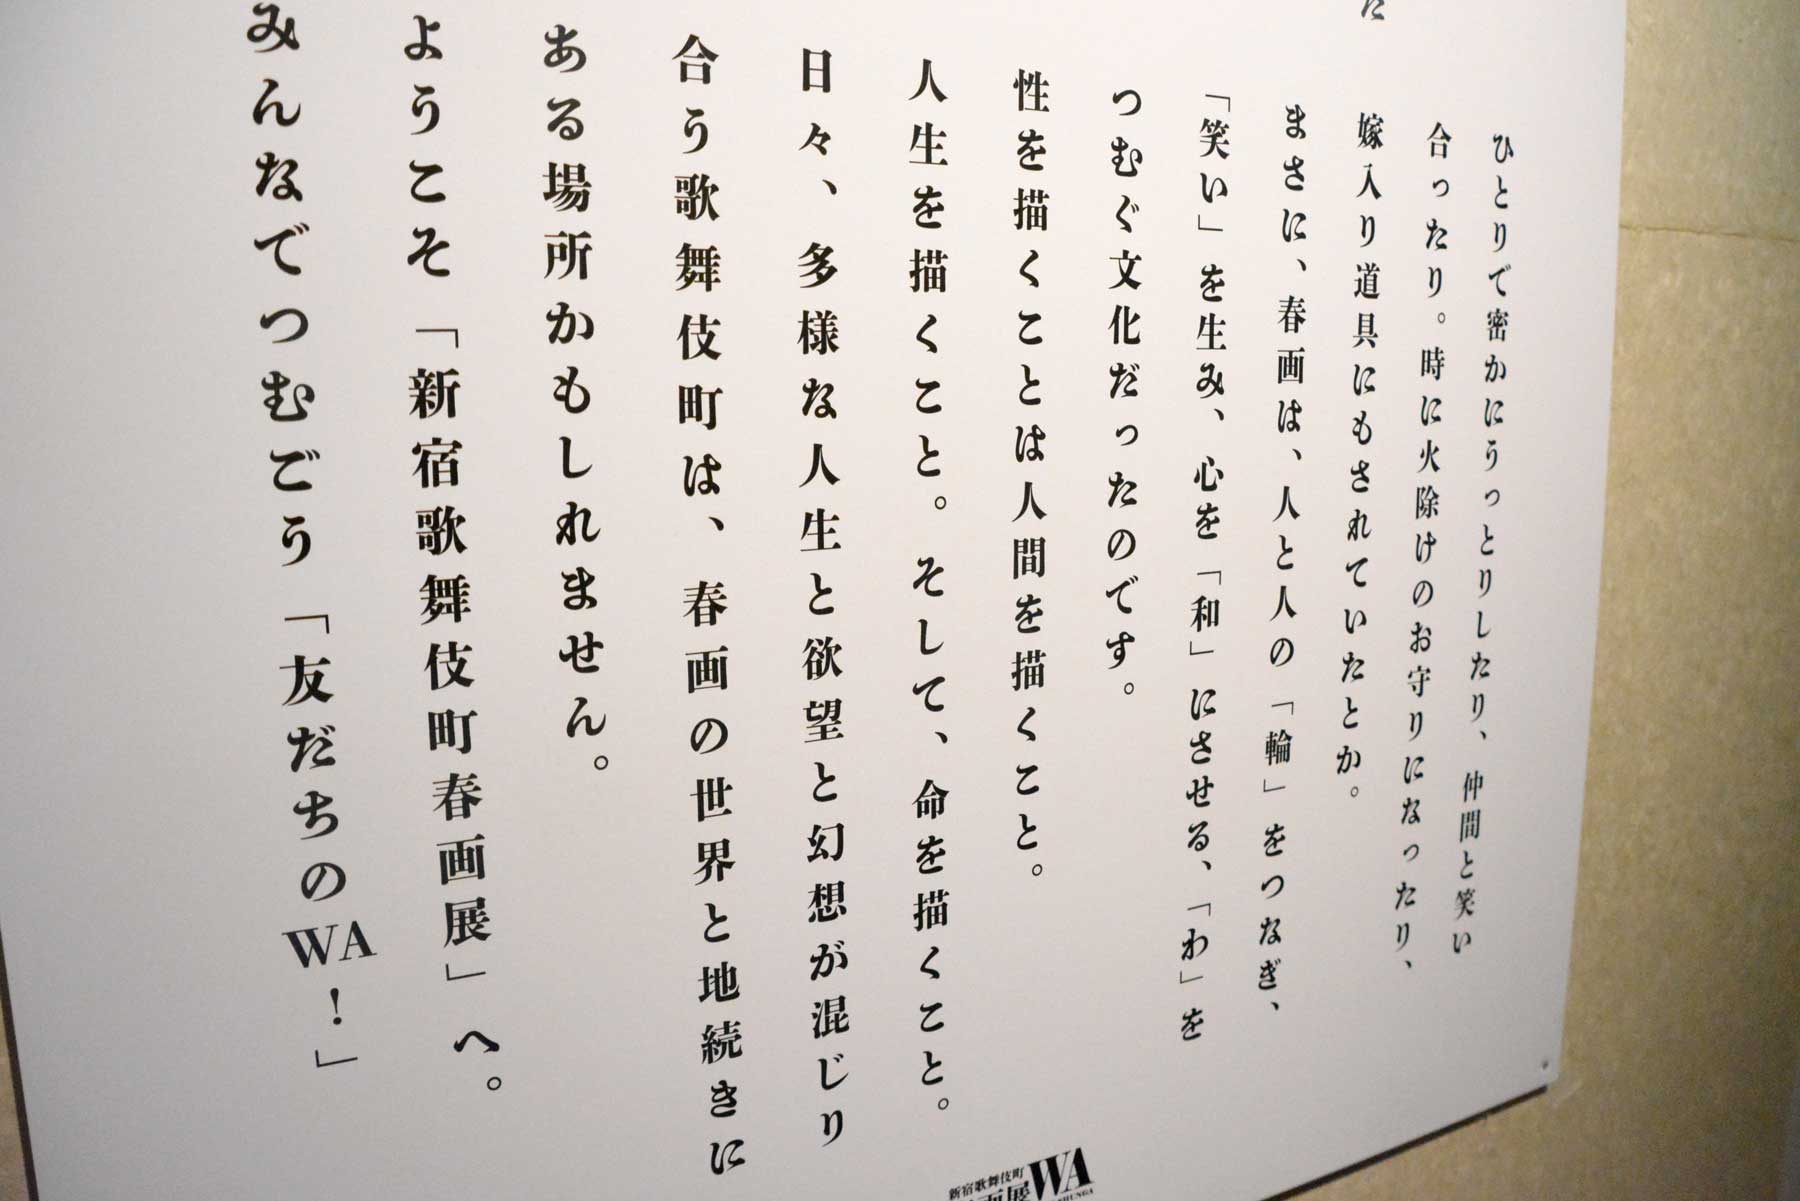 た
ひとりで密かにうっとりしたり、仲間と笑い
合ったり。時に火除けのお守りになったり、
嫁入り道具にもされていたとか。
まさに、春画は、人と人の「輪」をつなぎ、
「笑い」を生み、心を「和」にさせる、「わ」を
つむぐ文化だったのです。
性を描くことは人間を描くこと。
人生を描くこと。そして、命を描くこと。
日々、多様な人生と欲望と幻想が混じり
合う歌舞伎町は、春画の世界と地続きに
ある場所かもしれません。
ようこそ「新宿歌舞伎町春画展」へ。
みんなでつむごう「友だちのWA!」
新宿歌舞伎町
画展WA
SHUNGA